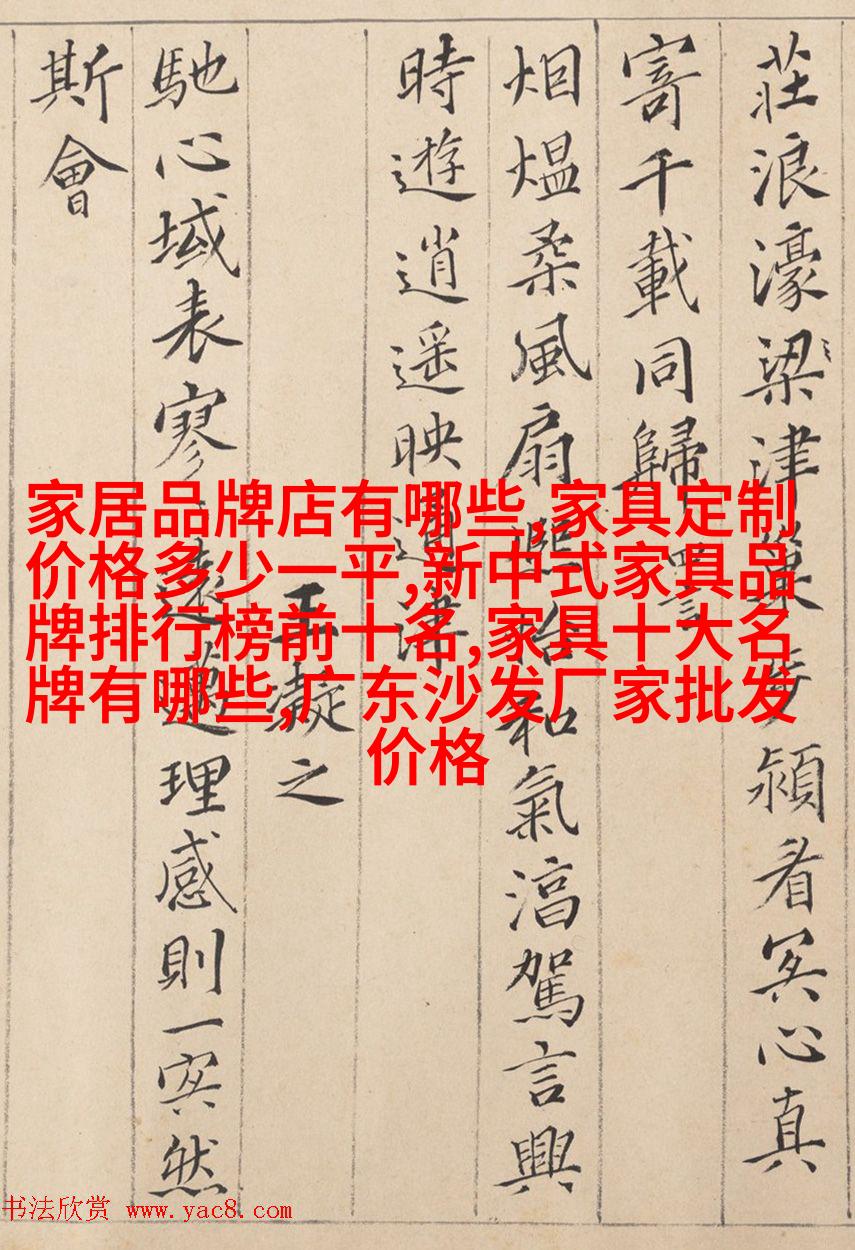 莊浪濠梁津巢步潁看冥心真
寄千載同歸
烟熅柔風扇熙怡和氣淳駕言興
時遊逍遥映通津
王凝之
馳心域表寥〻遠邁理感則一冥然
斯會
家居品牌店有哪些,家具定制
价格多少一平,新中式家具品
牌排行榜前十名,家具十大名
牌有哪些,广东沙发厂家批发
价格
书法欣赏 www.yac8.com